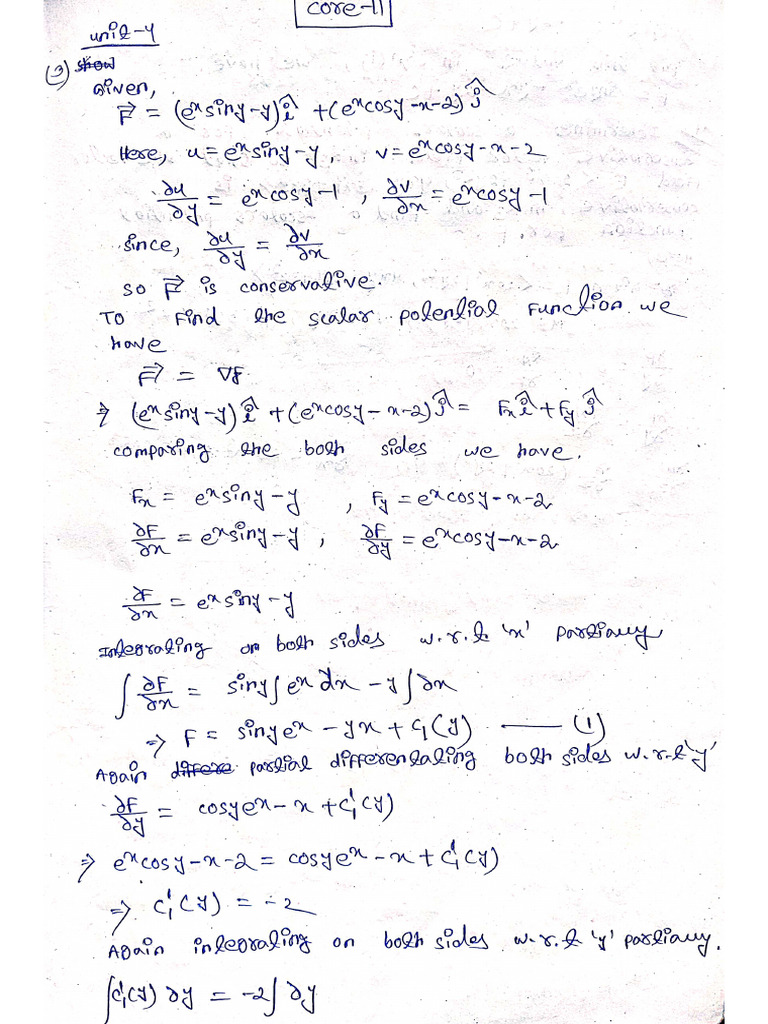 core-11
unit-4
(3) show
Given,
F⃗ = (eˣsiny-y)î + (eˣcosy-x-2)ĵ
Here, u = eˣsiny-y, v = eˣcosy-x-2
∂u/∂y = eˣcosy-1, ∂v/∂x = eˣcosy-1
since, ∂u/∂y = ∂v/∂x
so F⃗ is conservative.
To Find the scalar potential Function we
have
F⃗ = ∇f
⇒ (eˣsiny-y)î + (eˣcosy-x-2)ĵ = Fₓî + Fyĵ
comparing the both sides we have.
Fₓ = eˣsiny-y, Fy = eˣcosy-x-2
∂F/∂x = eˣsiny-y, ∂F/∂y = eˣcosy-x-2
∂F/∂x = eˣsiny-y
Integrating on both sides w.r.t 'x' partially
∫ ∂F/∂x = siny∫eˣ dx - y∫∂x
⇒ F = sinyeˣ - yx + C₁(y) —— (1)
Again differe partial differentating both sides w.r.t 'y'
∂F/∂y = cosyeˣ - x + C₁'(y)
⇒ eˣcosy-x-2 = cosyeˣ - x + C₁'(y)
⇒ C₁'(y) = -2
Again integrating on both sides w.r.t 'y' partially.
∫C₁'(y) ∂y = -2∫∂y